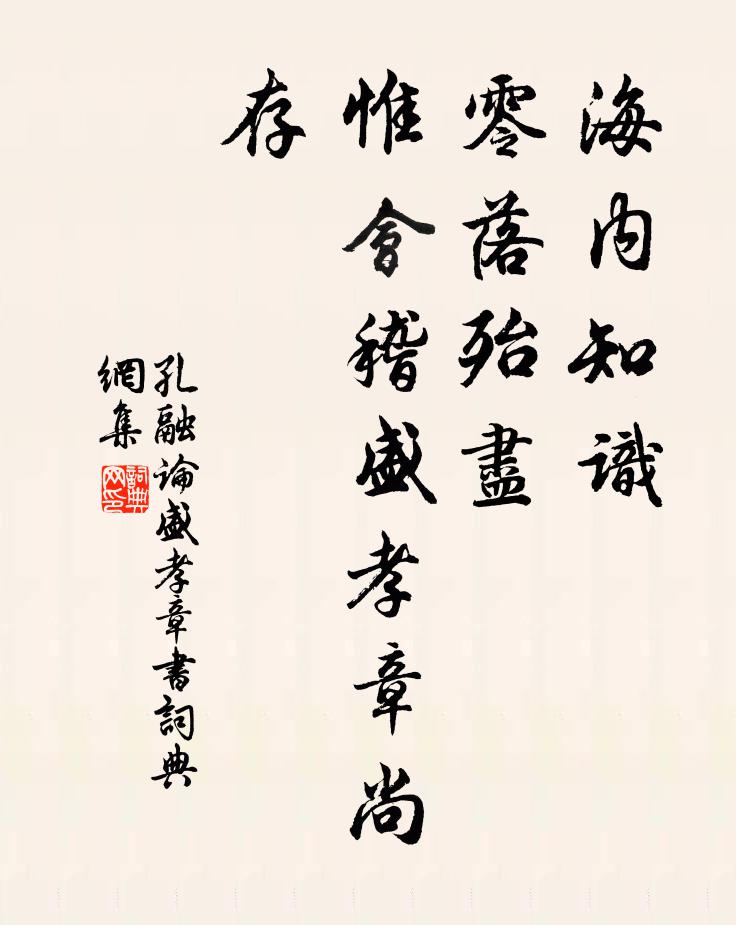 海内知識
零落殆盡
惟會稽盛孝章尚
存
孔融論盛孝章書詞典
網集
詞典
网印